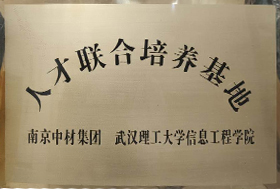 人才联合培养基地
南京中材集团 武汉理工大学信息工程学院